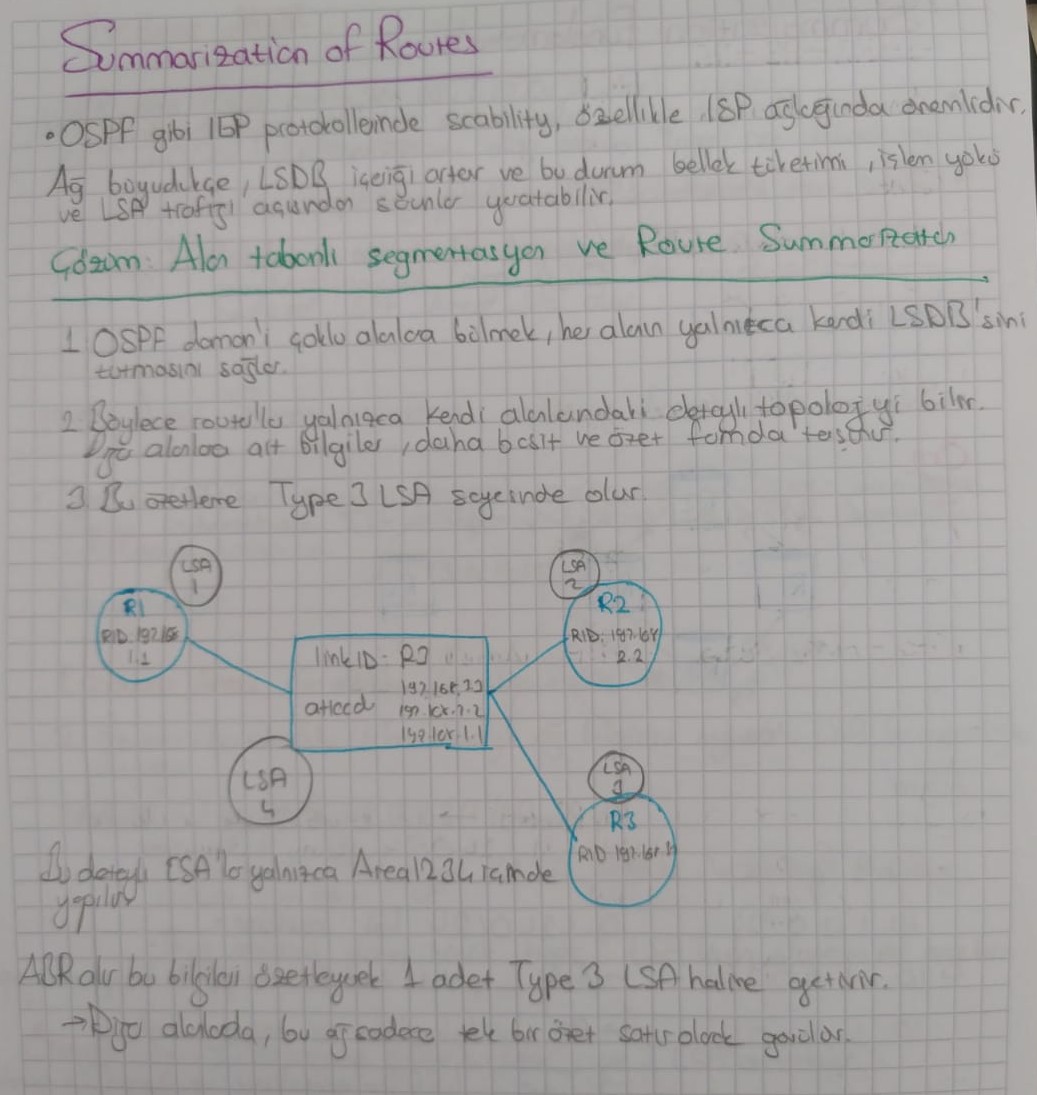 Summarization of Routes
• OSPF gibi IGP protokollerinde scability, özellikle ISP ağlarında önemlidir.
Ağ boyudukçe, LSDB içeriği artar ve bu durum bellek tüketimi, işlem yükü
ve LSA trafiği açısından sorunlar yaratabilir.
Çözüm: Alan tabanlı segmentasyon ve Route Summarization
1 OSPF domain'i çoklu alanlara bölmek, her alanın yalnızca kendi LSDB'sini
tutmasını sağlar.
2 Böylece routerlar yalnızca kendi alanlarındaki detaylı topolojiyi bilir.
Diğer alanlara ait bilgiler, daha basit ve özet formda taşınır.
3 Bu özetleme Type 3 LSA sayesinde olur.
LSA
1
LSA
2
R1
RID: 192.168
1.1
R2
RID: 192.168
2.2
link ID: R3
192.168.33
attached 192.168.2.2
192.168.1.1
LSA
4
LSA
3
R3
RID 192.168.
Bu detaylı LSA'lar yalnızca Area 1234 içinde
yapılır
ABRalar bu bilgileri özetleyerek 1 adet Type 3 LSA haline getirir.
→ Diğer alanlarda, bu ağ sadece tek bir özet satır olarak görülür.